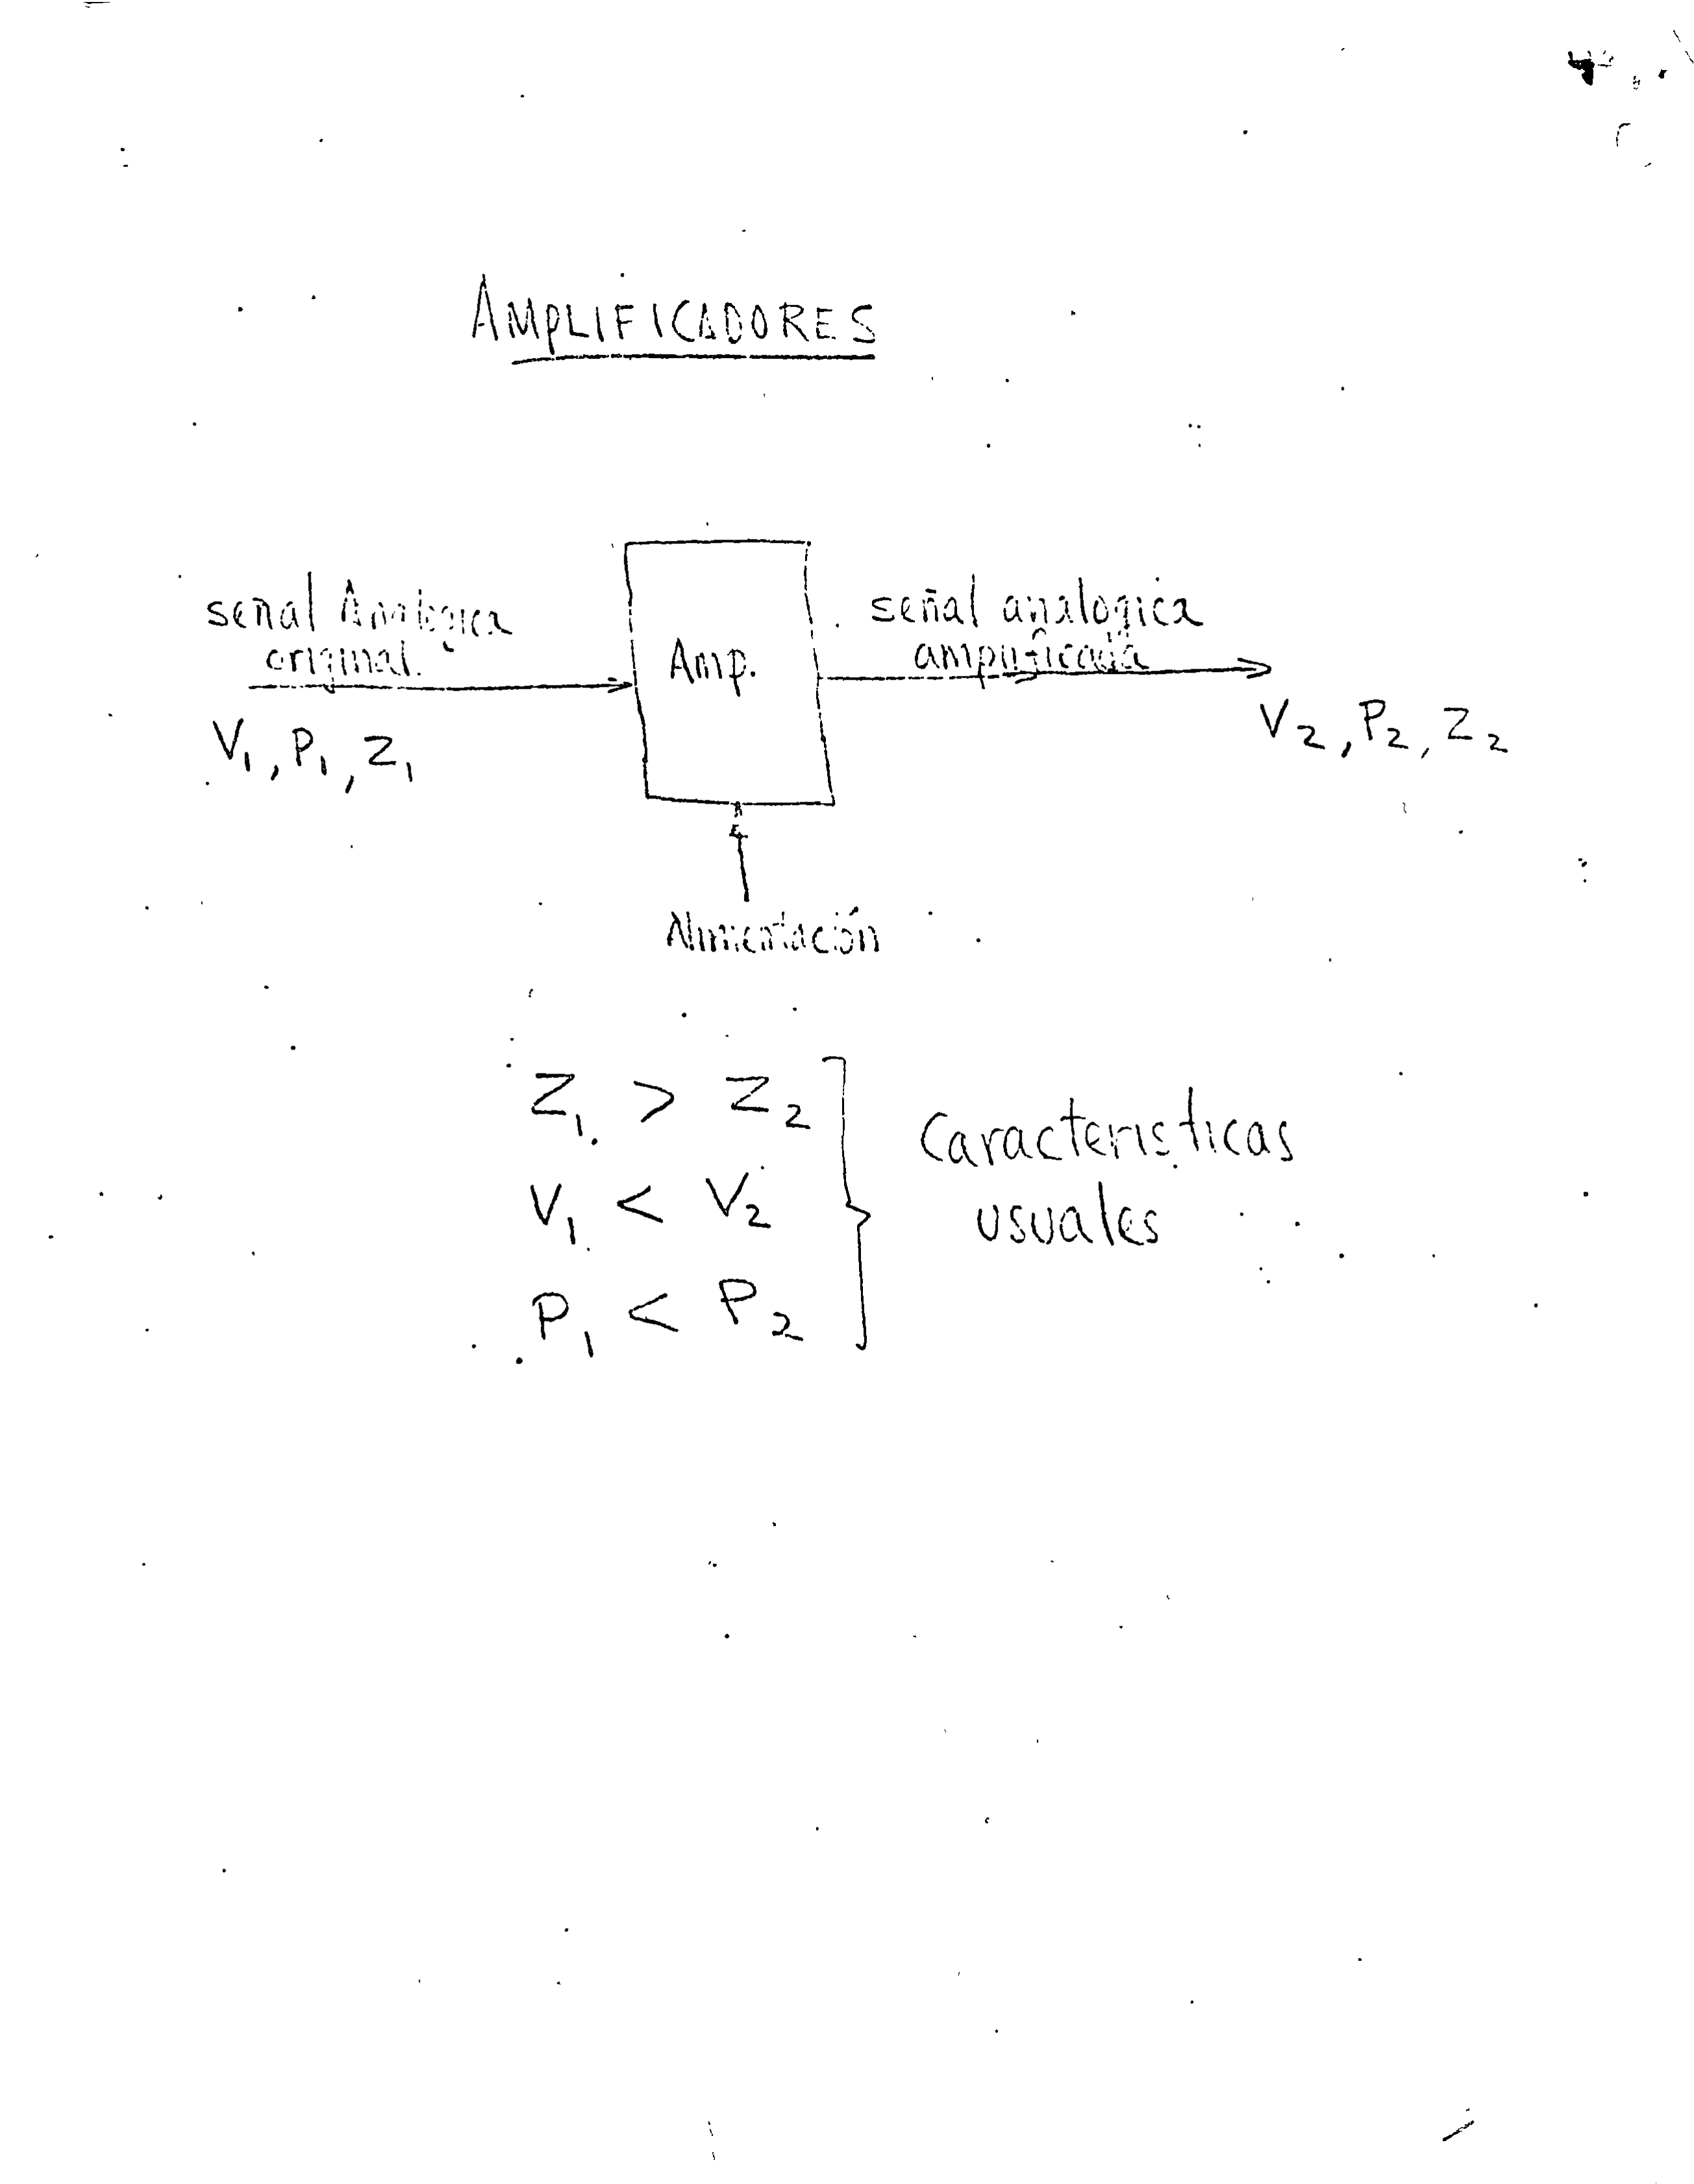 AMPLIFICADORES
señal Analogica
original.
Amp.
señal analogica
amplificada
V1, P1, Z1
V2, P2, Z2
Alimentación
Z1 > Z2
V1 < V2
P1 < P2
Caracteristicas
usuales